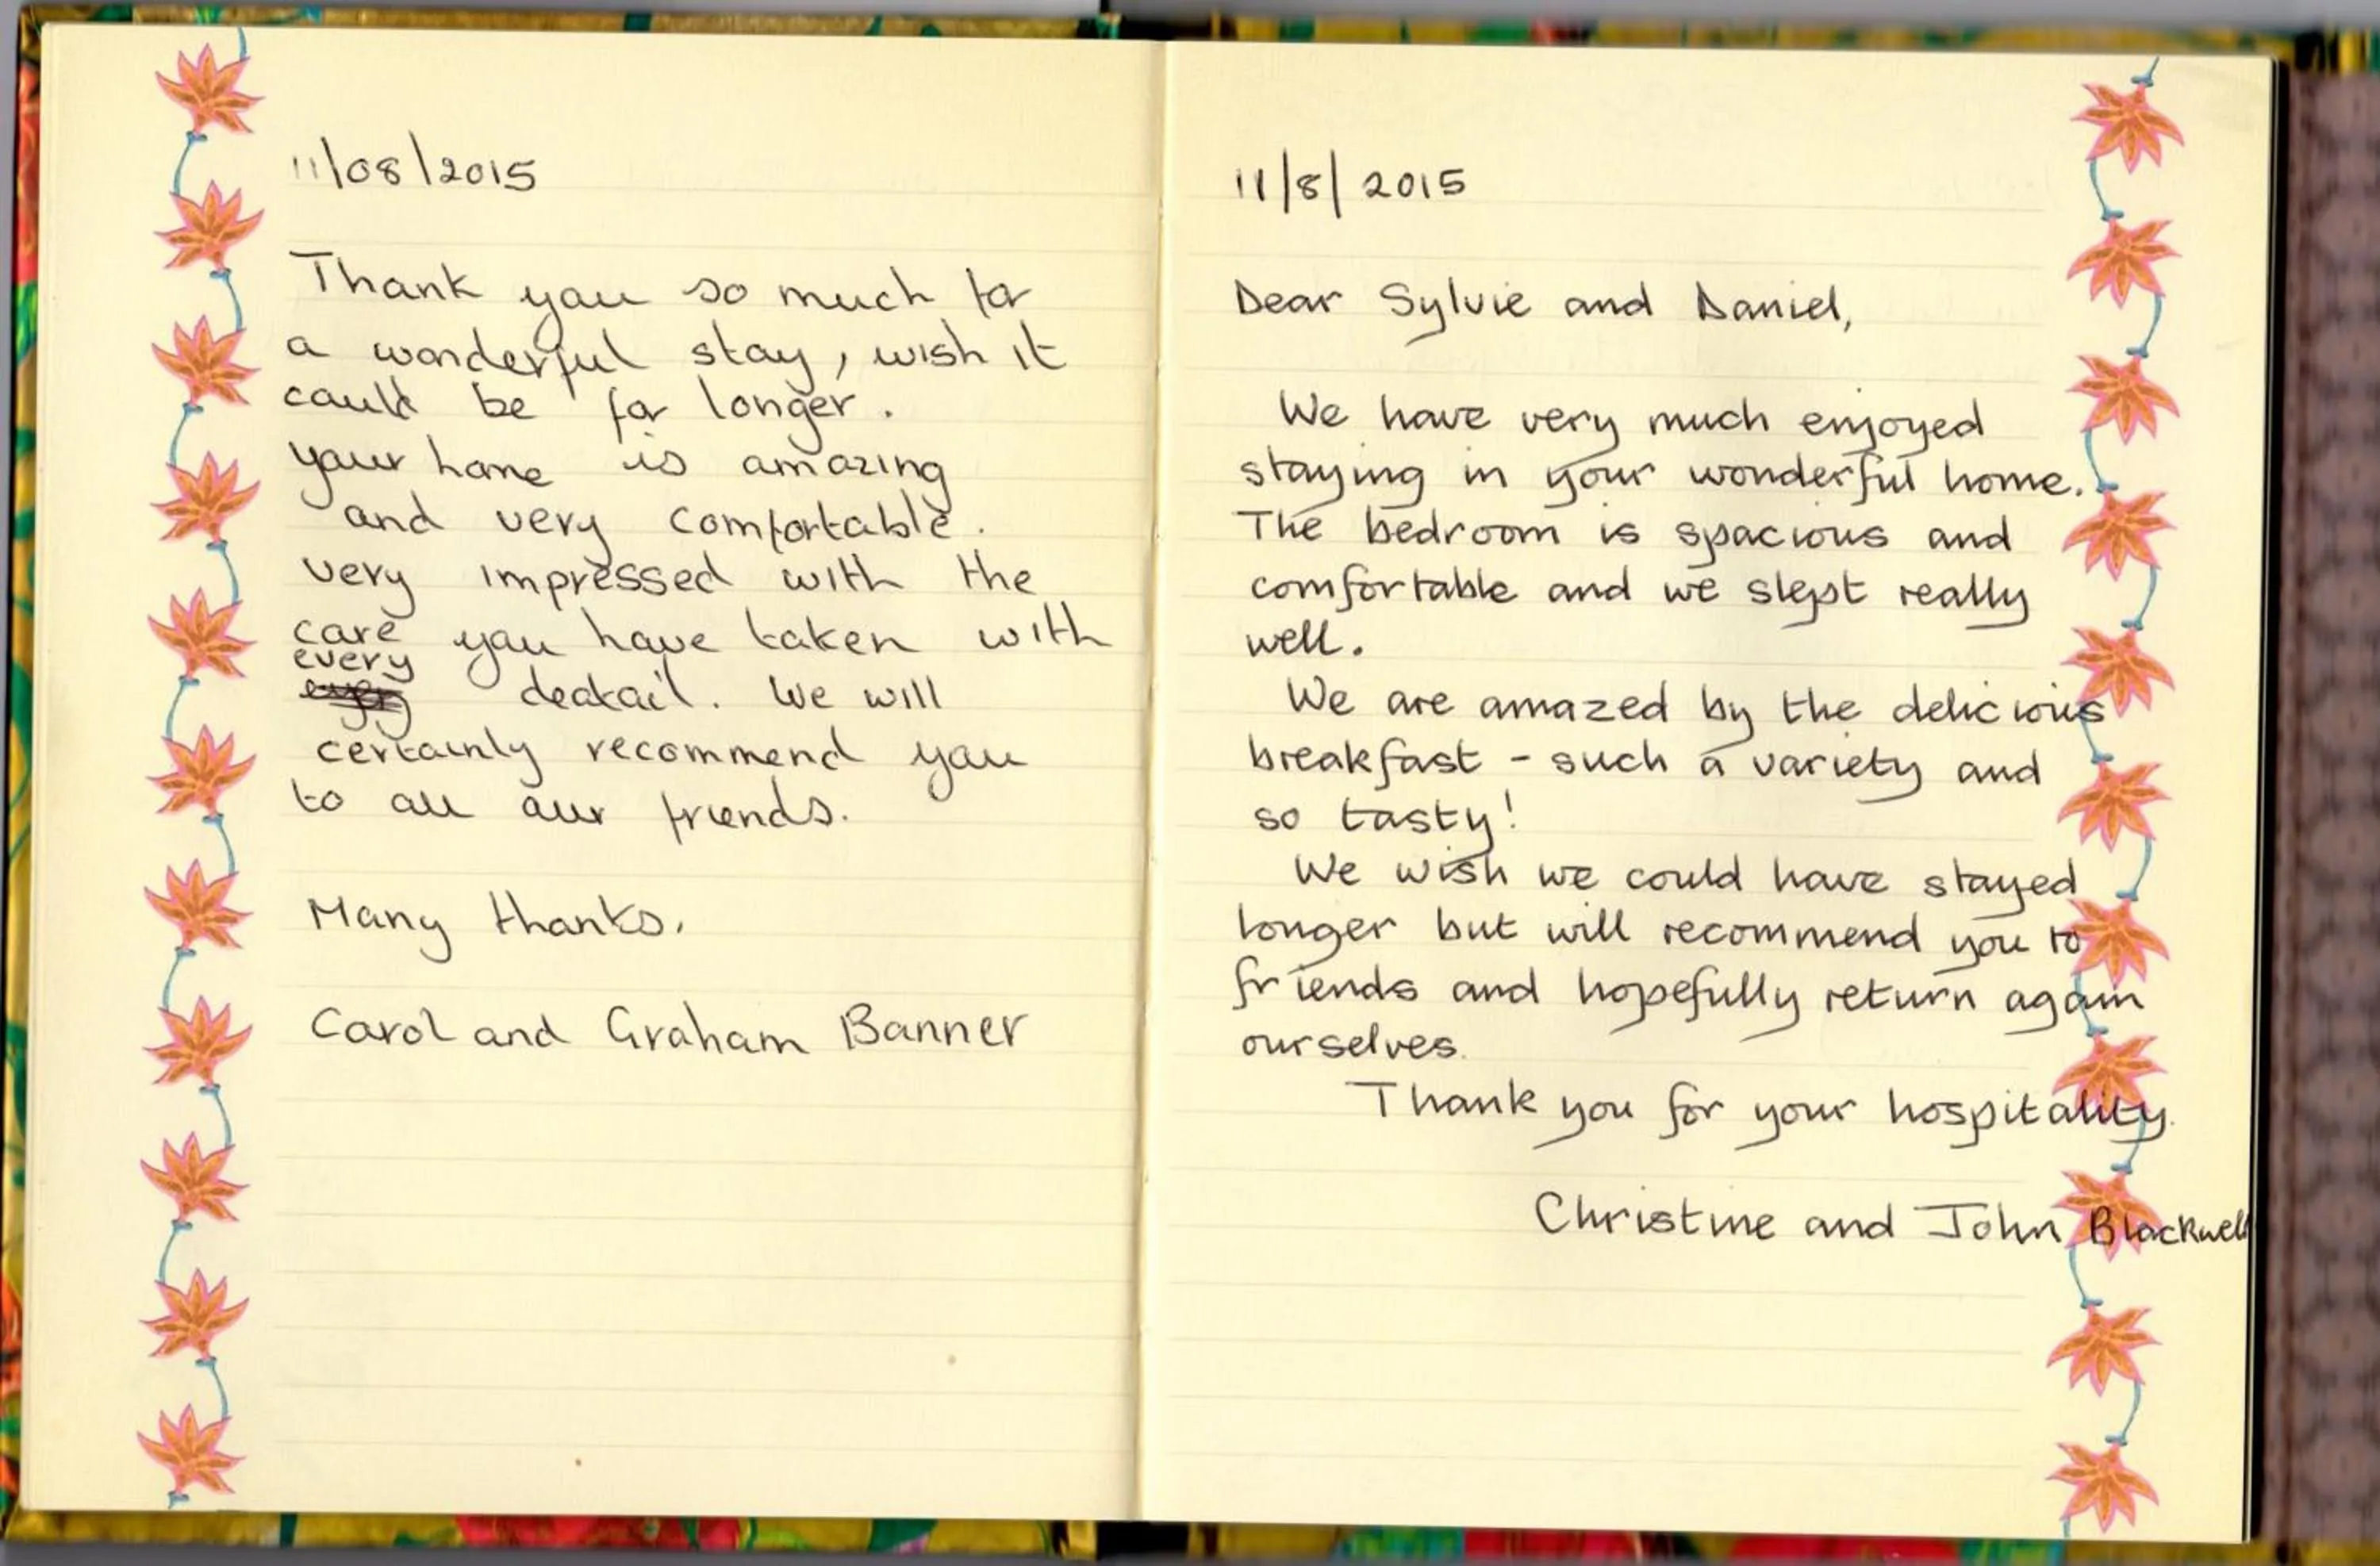 11/08/2015
Thank you so much for
a wonderful stay, wish it
could be for longer.
your home is amazing
and very comfortable.
very impressed with the
care you have taken with
every
deatail. We will
certainly recommend you
to all our friends.
Many thanks.
Carol and Graham Banner
11/8/2015
Dear Sylvie and Daniel,
We have very much enjoyed
staying in your wonderful home.
The bedroom is spacious and
comfortable and we slept really
well.
We are amazed by the delicious
breakfast - such a variety and
so tasty!
We wish we could have stayed
longer but will recommend you to
friends and hopefully return again
ourselves.
Thank you for your hospitality.
Christine and John Blackwell